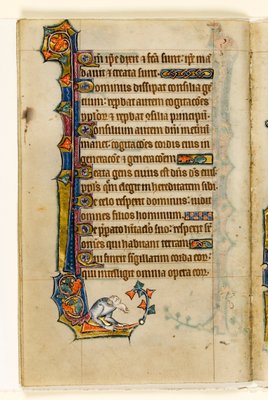 Qm̄ ip̄e dixit ⁊ fc̄a sunt: ip̄e man
dauit ⁊ creata sunt
Dominus dissipat consilia gen
tium: rep̄bat autem cogitac̄ōes
pp̄lor̄ ⁊ rep̄bat ɔsilia principū
Consilium autem dn̄i in et̄nū
manet: cogitac̄ōes cordis eius in
generac̄ōe ⁊ generac̄ōem
Beata gens cuius est dn̄s ds̄ eius
pp̄ls quē elegit in hereditatem sibi
De celo respexit dominus: uidit
omnes filios hominum
De p̄pato hitac̄lo suo: respexit sr̄
om̄es qui habitant terram
Qui finxit sigillatim corda eor̄:
qui intelligit omnia opera eor̄